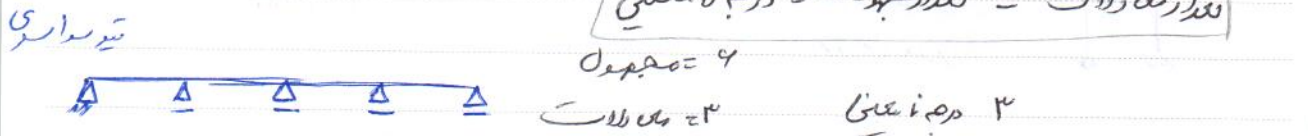 تعداد معادلات = تعداد مجهولات - درجه نامعینی
تیر سراسری
مجهول = ۶
معادلات = ۳    ۳ درجه نامعینی